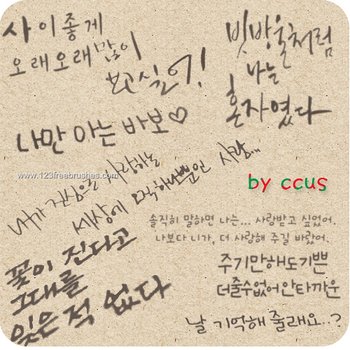 사이좋게
오래오래 많이
보고싶어!
빗방울처럼
나는
혼자였다
나만 아는 바보♡
www.123freebrushes.com
내가 진심으로 사랑하는
세상에 딱 하나뿐인 사람...
by ccus
솔직히 말하면 나는... 사랑받고 싶었어.
나보다 니가, 더 사랑해 주길 바랐어.
꽃이 진다고
그대를
잊은적 없다
주기만해도기쁜
더줄수없어안타까운
날 기억해 줄래요..?